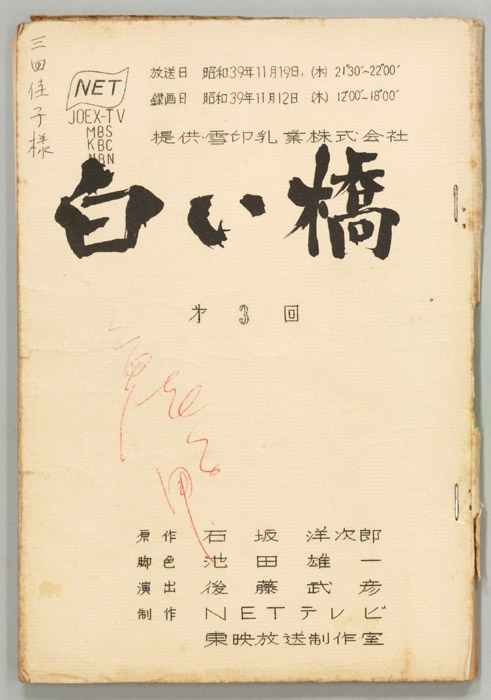 三田佳子様
NET
JOEX-TV
MBS
KBC
NBN
放送日 昭和39年11月19日 (木) 21°30′~22°00′
録画日 昭和39年11月12日 (木) 12°00′~18°00′
提供・雪印乳業株式会社
白い橋
才3回
原作 石坂洋次郎
脚色 池田雄一
演出 後藤武彦
制作 NETテレビ
東映放送制作室